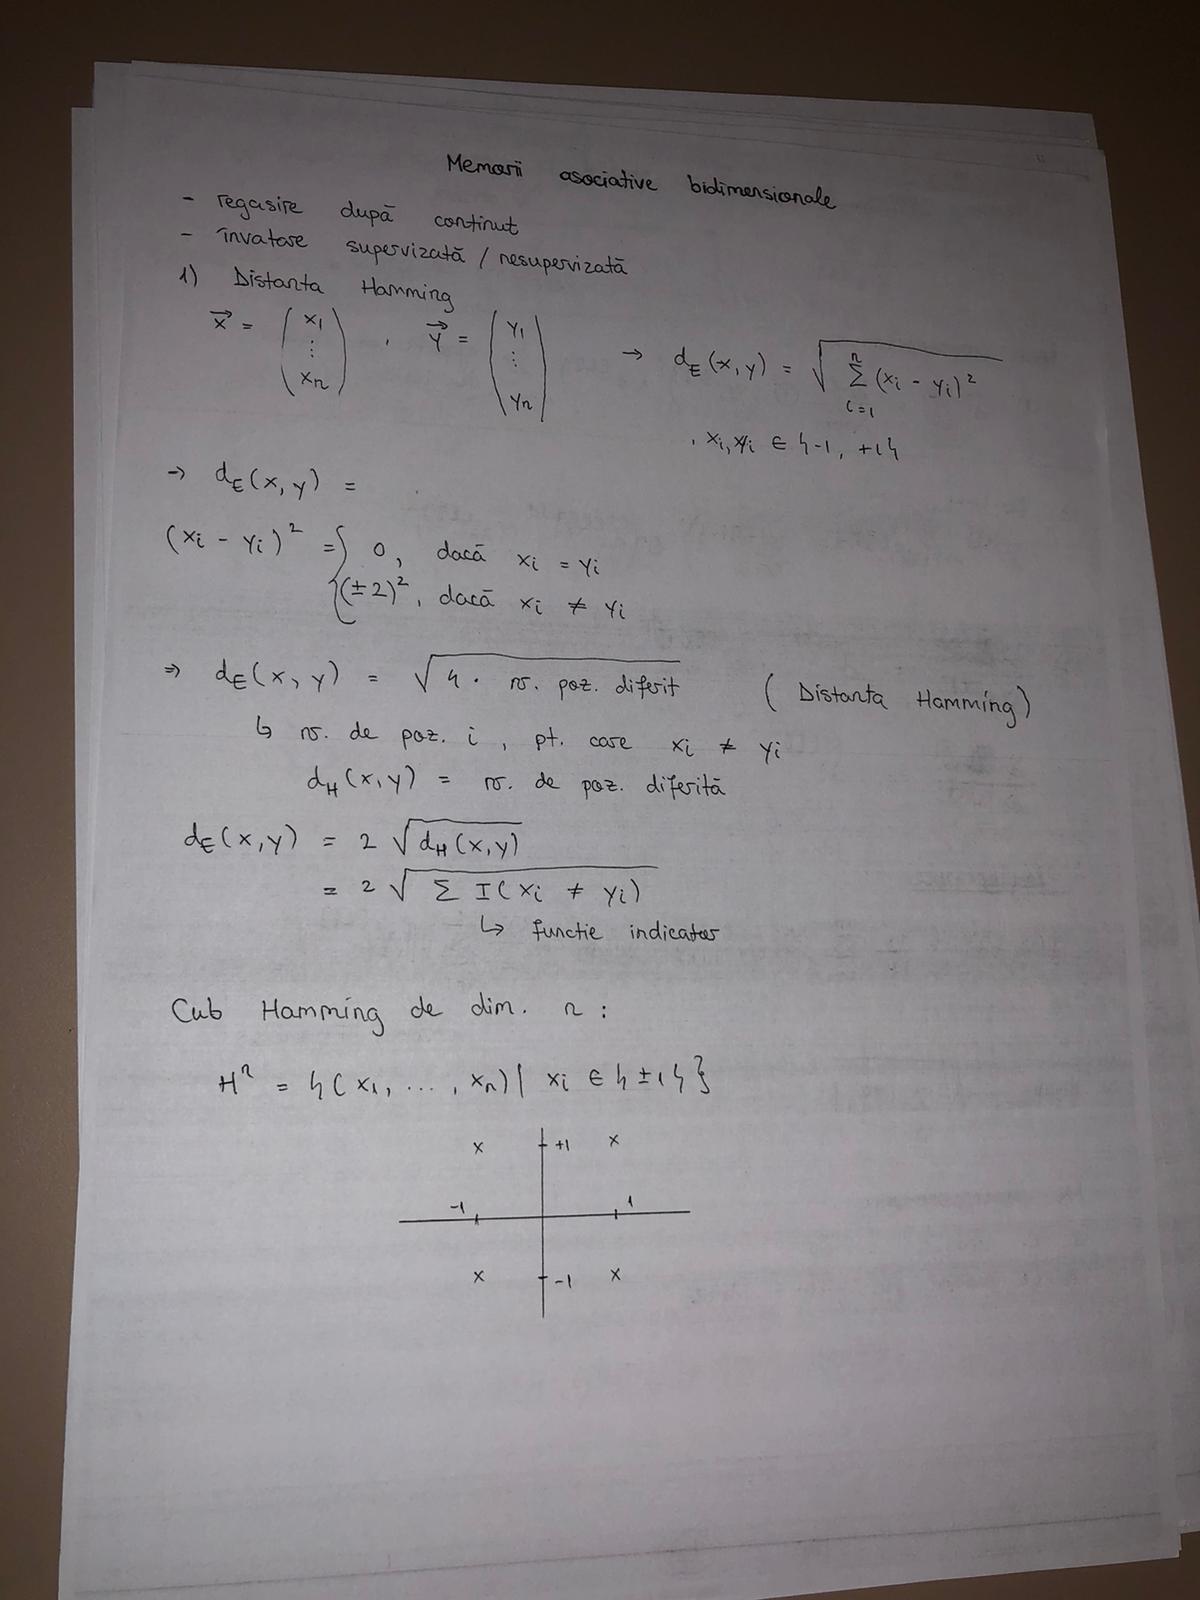 Memorii asociative bidimensionale
- regasire după continut
- învatare supervizată / nesupervizată
1) Distanta Hamming
x⃗ = (x₁ ⋮ xₙ) , y⃗ = (y₁ ⋮ yₙ) → d_E(x,y) = √(∑_{i=1}^{n} (xᵢ - yᵢ)²)
, xᵢ, yᵢ ∈ {-1, +1}
→ d_E(x,y) =
(xᵢ - yᵢ)² = { 0, dacă xᵢ = yᵢ
{ (±2)², dacă xᵢ ≠ yᵢ
⇒ d_E(x,y) = √(4 · nr. poz. diferit) (Distanta Hamming)
↳ nr. de poz. i, pt. care xᵢ ≠ yᵢ
d_H(x,y) = nr. de poz. diferită
d_E(x,y) = 2 √(d_H(x,y))
= 2 √(∑ I(xᵢ ≠ yᵢ))
↳ functie indicator
Cub Hamming de dim. n :
Hⁿ = {(x₁, ..., xₙ) | xᵢ ∈ {±1}}
x +1 x
-1 1
x -1 x